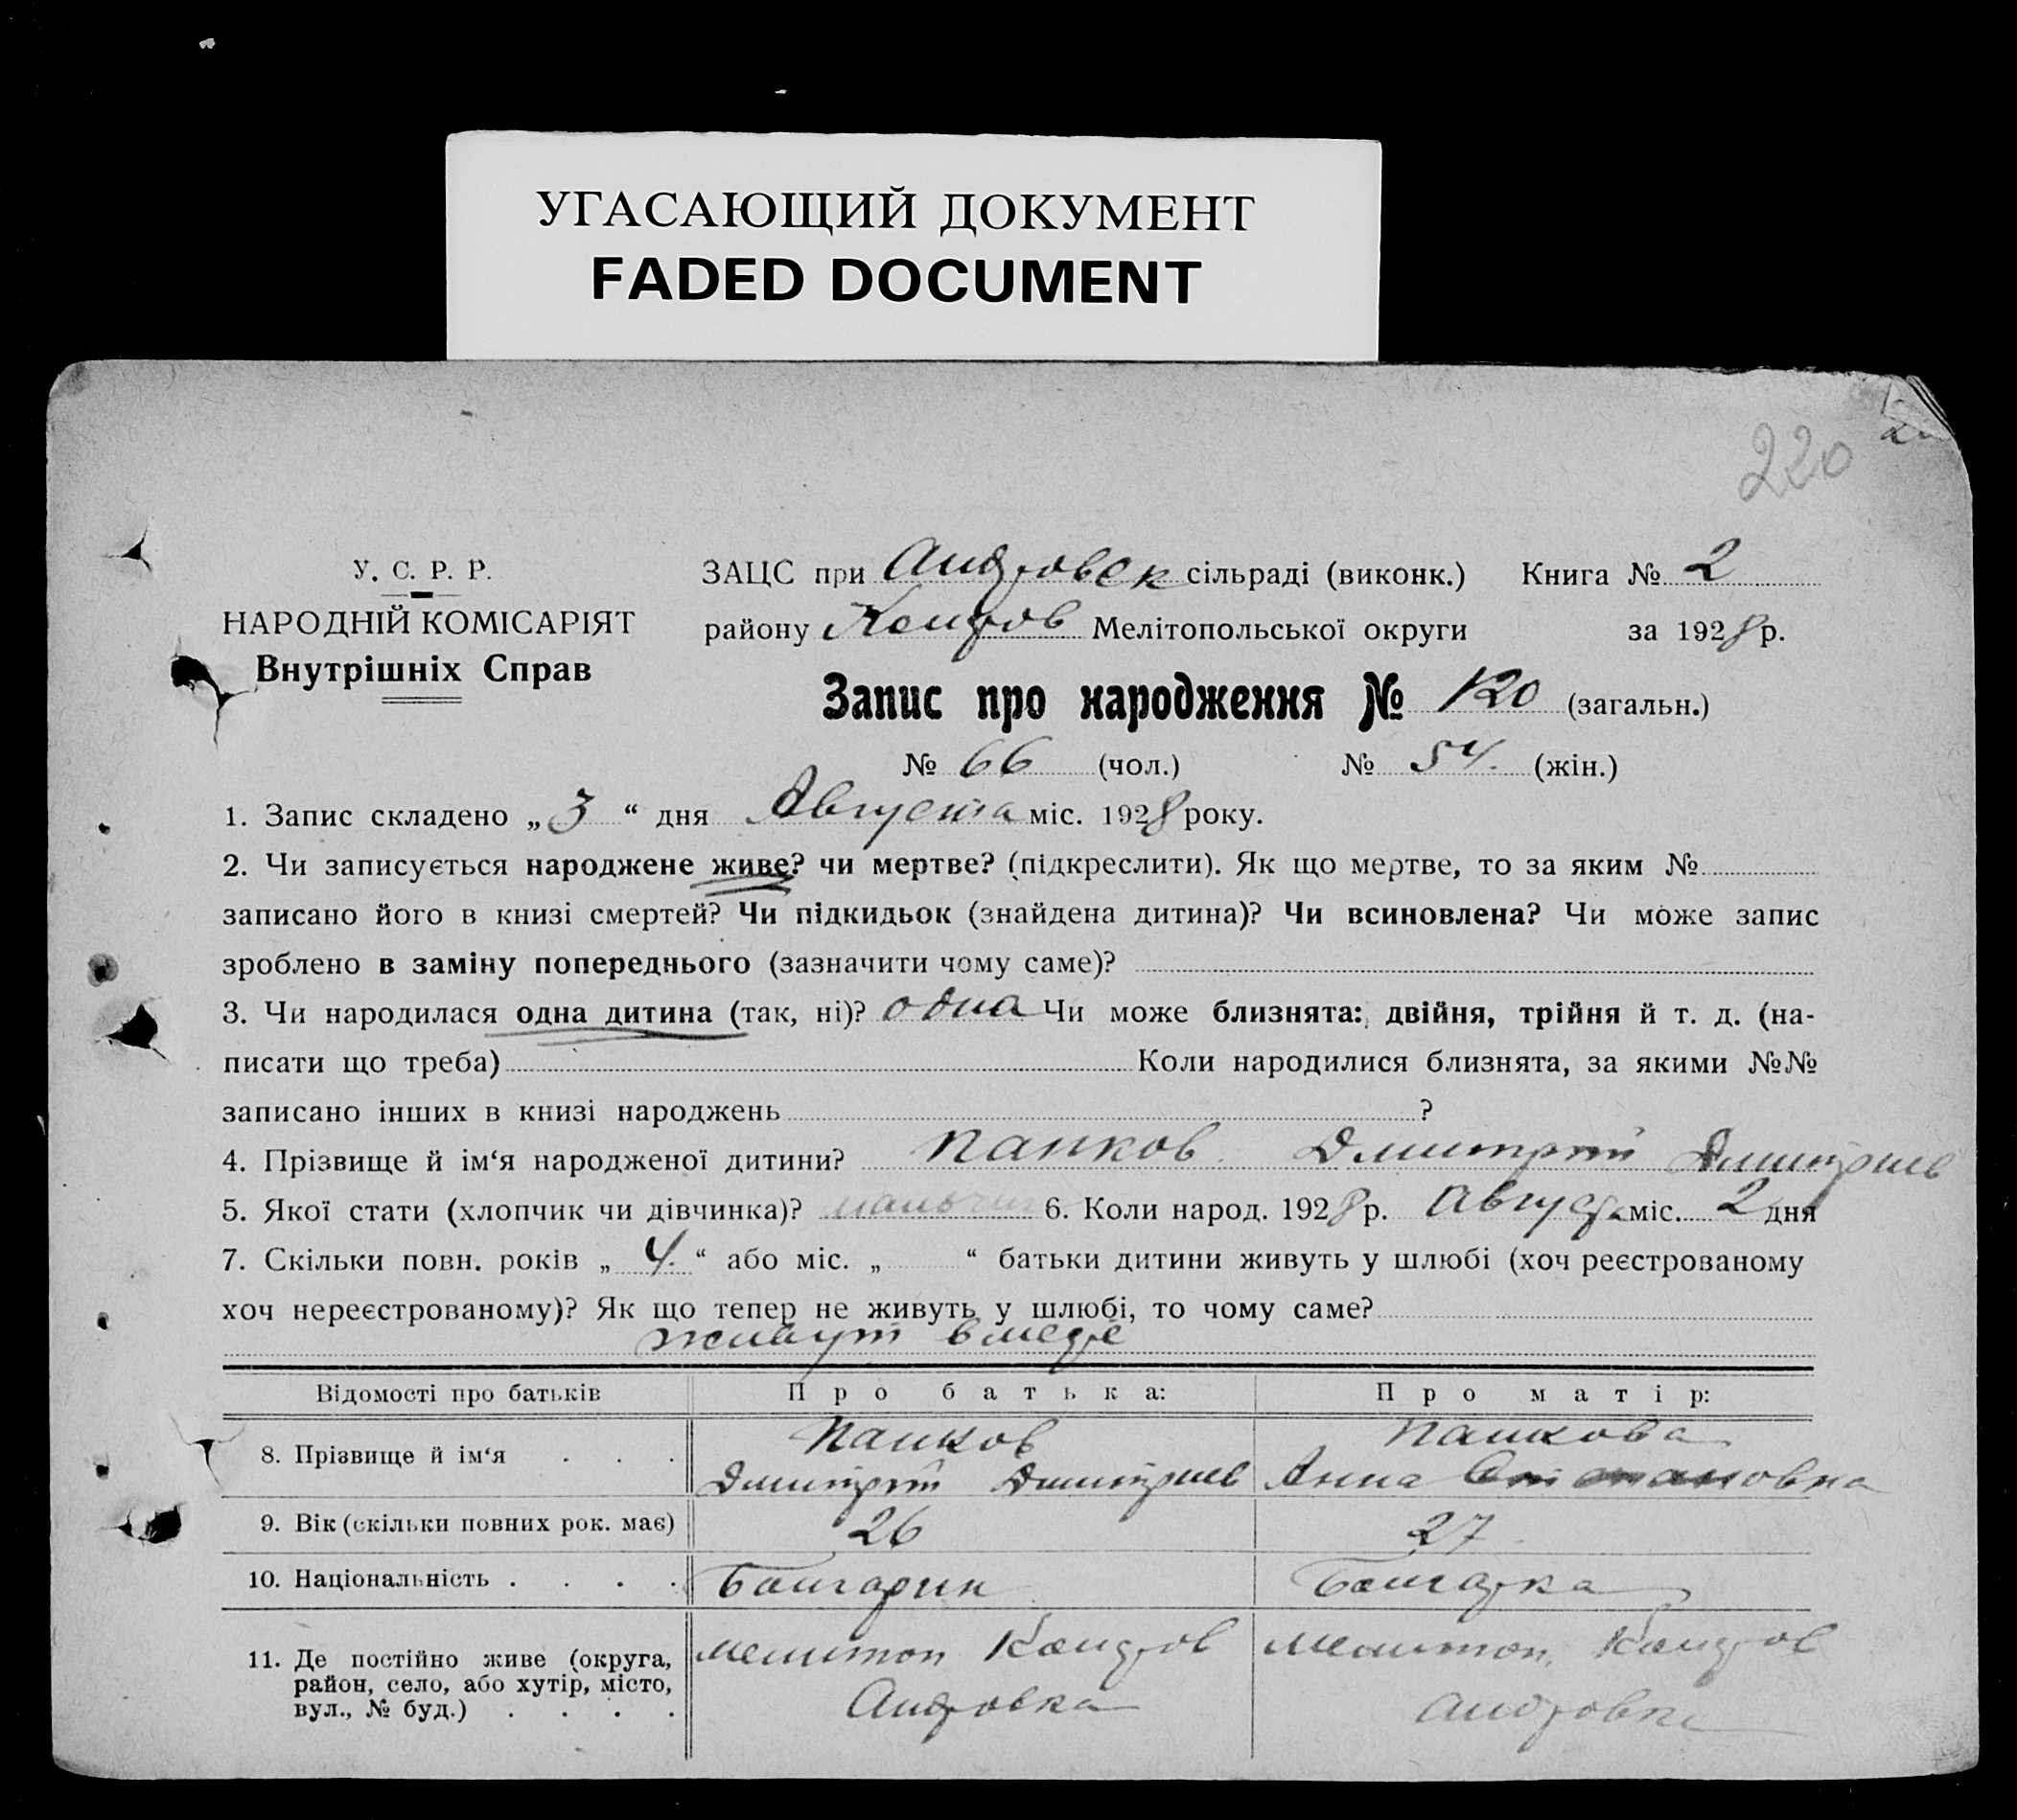 УГАСАЮЩИЙ ДОКУМЕНТ
FADED DOCUMENT
220
У. С. Р. Р.
НАРОДНІЙ КОМІСАРІЯТ
Внутрішніх Справ
ЗАЦС при Андровск сільраді (виконк.) Книга № 2
району Мелітопольської округи за 1928 р.
Запис про народження № 120 (загальн.)
№ 66 (чол.) № 54. (жін.)
1. Запис складено „ 3 “ дня Августа міс. 1928 року.
2. Чи записується народжене живе? чи мертве? (підкреслити). Як що мертве, то за яким №
записано його в книзі смертей? Чи підкидьок (знайдена дитина)? Чи всиновлена? Чи може запис
зроблено в заміну попереднього (зазначити чому саме)?
3. Чи народилася одна дитина (так, ні)? одна Чи може близнята: двійня, трійня й т. д. (на-
писати що треба) Коли народилися близнята, за якими №№
записано інших в книзі народжень ?
4. Прізвище й ім‘я народженої дитини? Панков Дмитрий Дмитриев
5. Якої стати (хлопчик чи дівчинка)? 6. Коли народ. 1928 р. Августа міс. 2 дня
7. Скільки повн. років „ 4. “ або міс. „ “ батьки дитини живуть у шлюбі (хоч реєстрованому
хоч нереєстрованому)? Як що тепер не живуть у шлюбі, то чому саме?
живут вместе
Відомості про батьків Про батька: Про матір:
8. Прізвище й ім‘я . . . Панков Панкова
Дмитрий Дмитриев Анна
9. Вік (скільки повних рок. має) 26 27
10. Національність . . . . Болгарин Болгарка
11. Де постійно живе (округа, район, село, або хутір, місто, вул., № буд.) . . . . Мелитоп Мелитоп.
Андровка Андровка